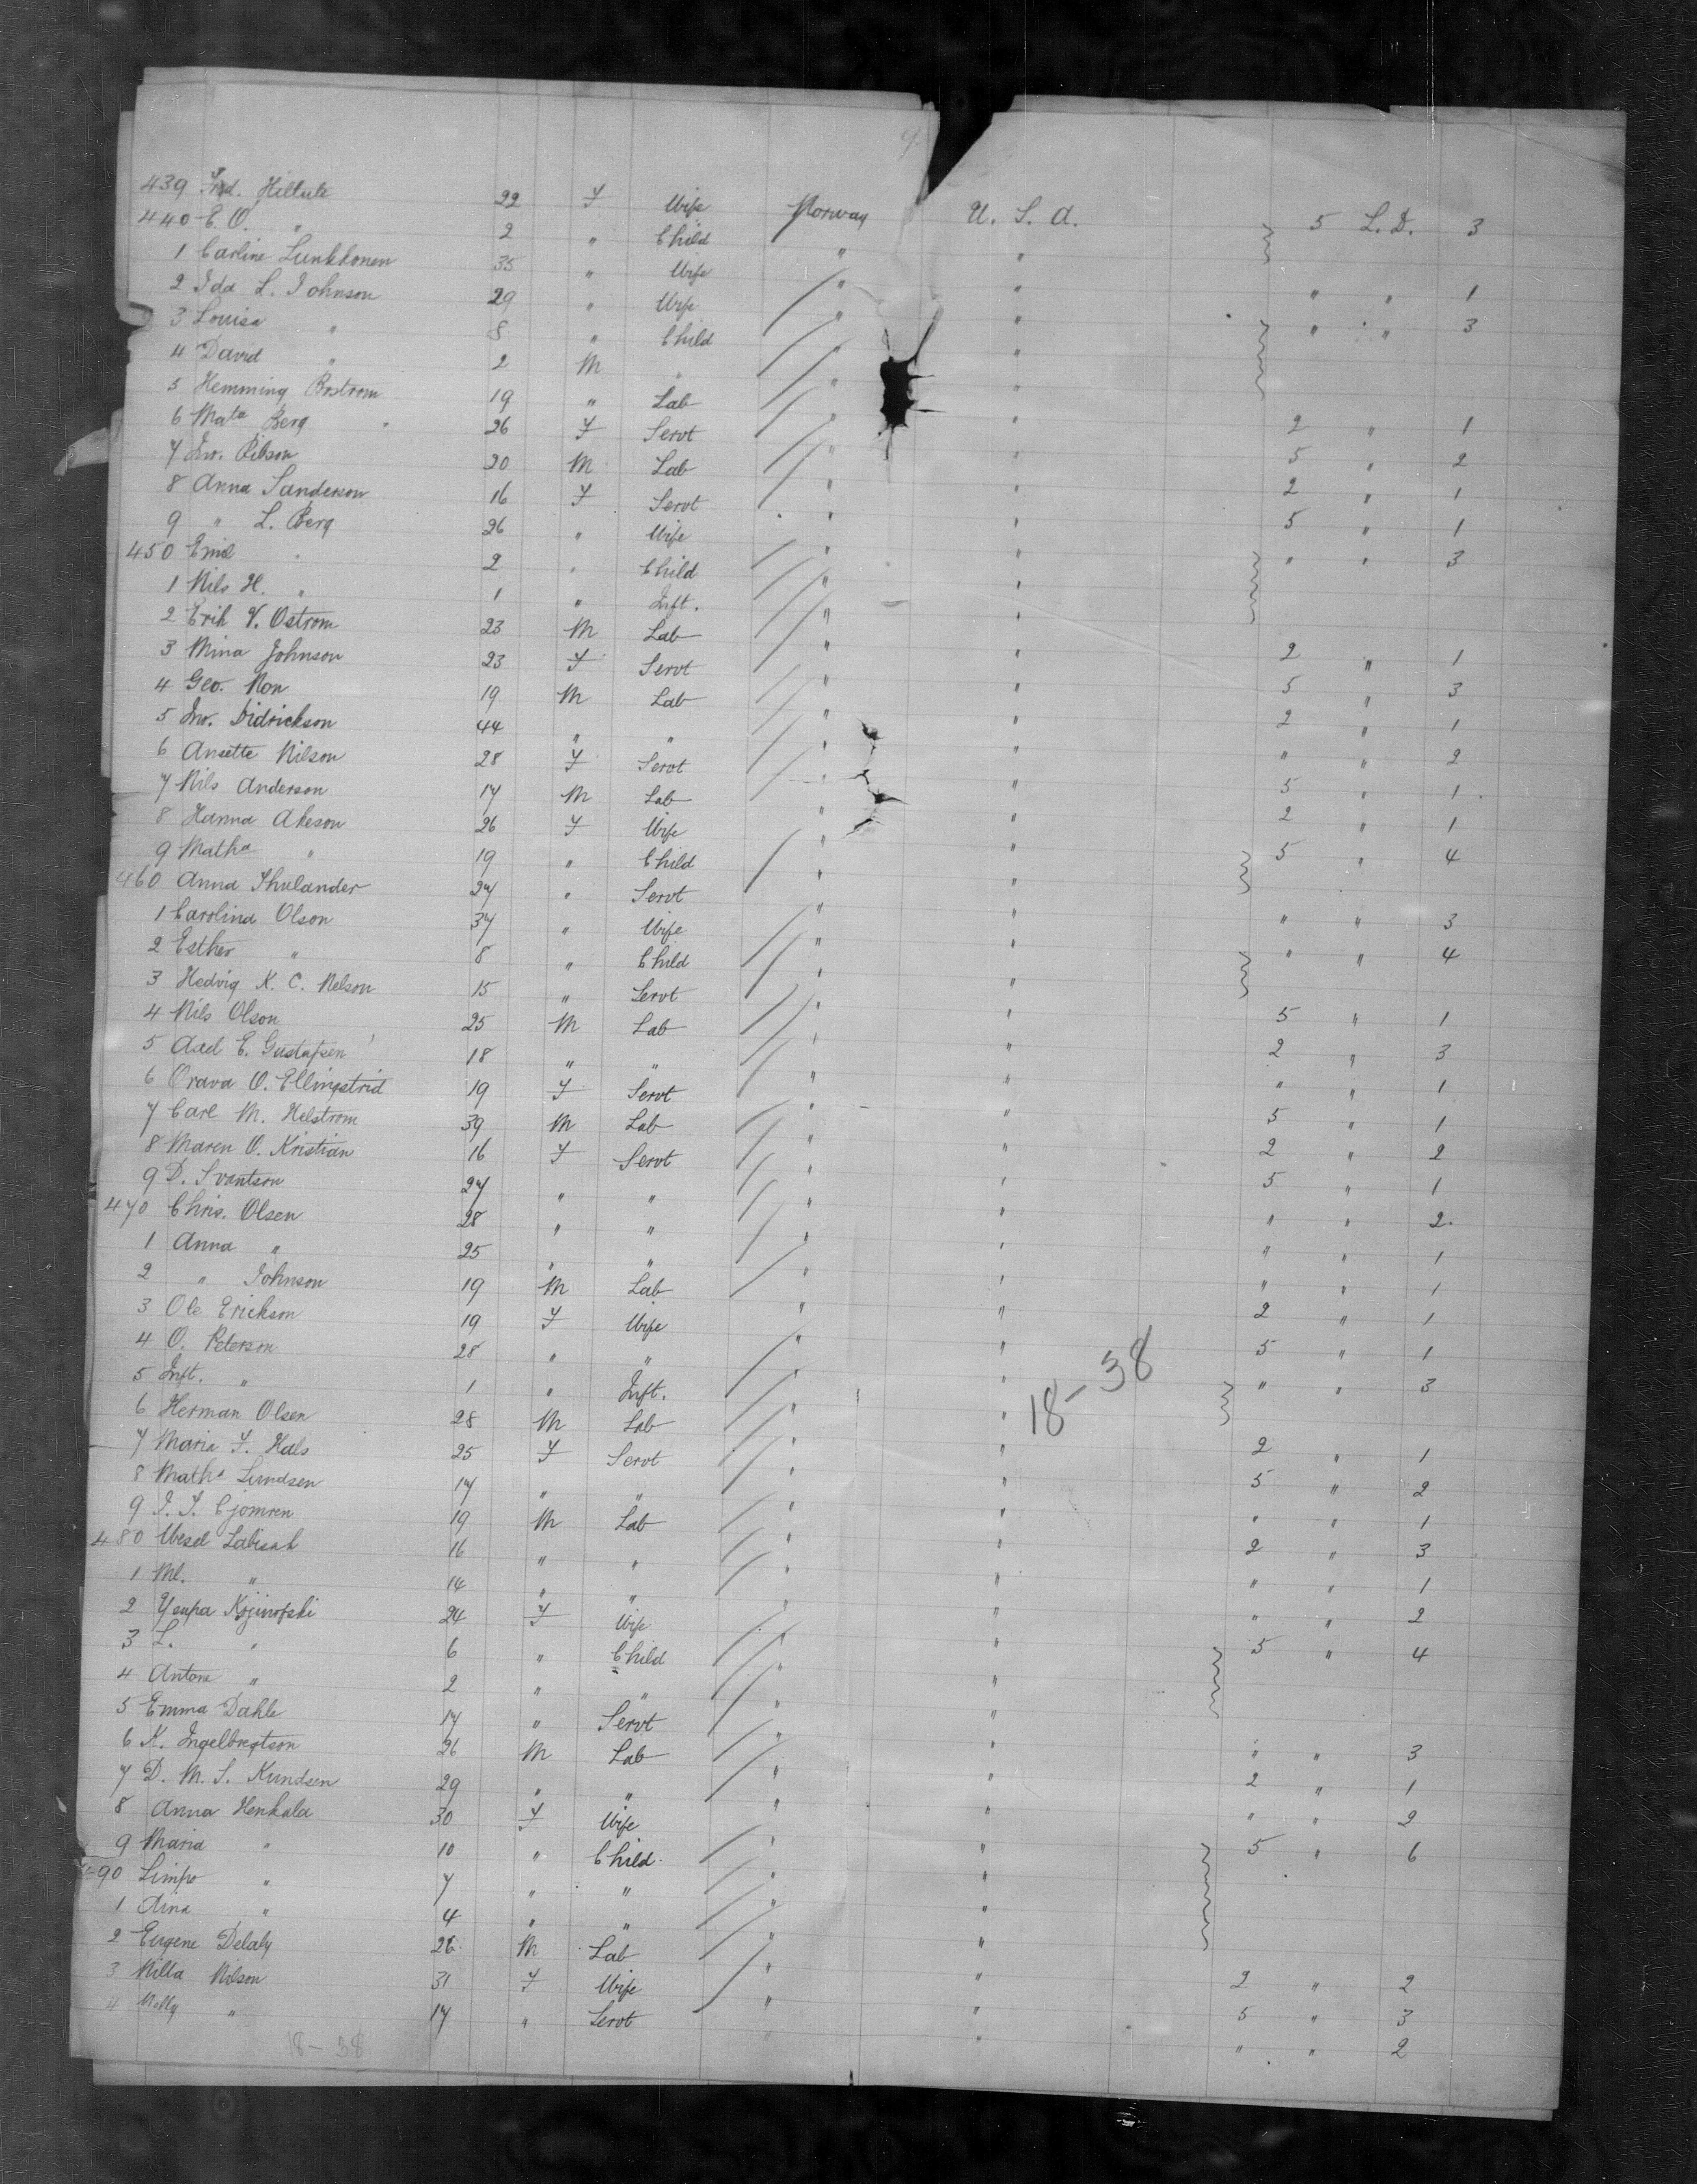 439 Fred. Hiltula 22 F Wife Norway U. S. A. 5 L. D. 3
440 E. O. " 2 " Child " "
1 Carline Lunkkonen 35 " Wife " " " " 1
2 Ida L. Johnson 29 " Wife " " " " 3
3 Louisa " 8 " Child " "
4 David " 2 M " " "
5 Hemming Bostrom 19 " Lab " " 2 " 1
6 Mata Berg 26 F Servt " " 5 " 2
7 Jno. Pilson 20 M Lab " " 2 " 1
8 Anna Sanderson 16 F Servt " " 5 " 1
9 " L. Berg 26 " Wife " " " " 3
450 Emil " 2 " Child " "
1 Nils H. " 1 " Inft. " "
2 Erik V. Ostrom 23 M Lab " " 2 " 1
3 Mina Johnson 23 F Servt " " 5 " 3
4 Geo. Non 19 M Lab " " 2 " 1
5 Jno. Didrickson 44 " " " " " " 2
6 Ansette Nilson 28 F Servt " " 5 " 1
7 Nils Anderson 17 M Lab " " 2 " 1
8 Hanna Akeson 26 F Wife " " 5 " 4
9 Matha " 19 " Child " "
460 Anna Thulander 27 " Servt " " " " 3
1 Carolina Olson 37 " Wife " " " " 4
2 Esther " 8 " Child " "
3 Hedvig K. C. Nelson 15 " Servt " " 5 " 1
4 Nils Olson 25 M Lab " " 2 " 3
5 Axel E. Gustafsen 18 " " " " " " 1
6 Orava O. Ellingstrid 19 F Servt " " 5 " 1
7 Carl M. Helstrom 39 M Lab " " 2 " 2
8 Maren O. Kristian 16 F Servt " " 5 " 1
9 D. Svantson 27 " " " " " " 2
470 Chris. Olsen 28 " " " " " " 1
1 Anna " 25 " " " " " " 1
2 " Johnson 19 M Lab " " 2 " 1
3 Ole Erickson 19 F Wife " " 5 " 1
4 O. Peterson 28 " " " " " " 3
5 Inft. " 1 " Inft. " "
18-38
6 Herman Olsen 28 M Lab " " 2 " 1
7 Maria F. Hals 25 F Servt " " 5 " 2
8 Matha Lundsen 17 " " " " " " 1
9 J. J. Cjomren 19 M Lab " " 2 " 3
480 Labisak 16 " " " " " " 1
1 Ml. " 14 " " " " " " 2
2 24 F Wife " " 5 " 4
3 L. " 6 " Child " "
4 Antora " 2 " " " "
5 Emma Dahle 17 " Servt " " " " 3
6 K. Ingelbregtson 26 M Lab " " 2 " 1
7 D. M. S. Kundsen 29 " " " " " " 2
8 Anna Henkala 30 F Wife " " 5 " 6
9 Maria " 10 " Child " "
490 Limpo " 7 " " " "
1 Aina " 4 " " " "
2 Eugene Delaly 26 M Lab " " 2 " 2
3 Milla Nilson 31 F Wife " " 5 " 3
4 Molly " 17 " Servt " " " " 2
18-38